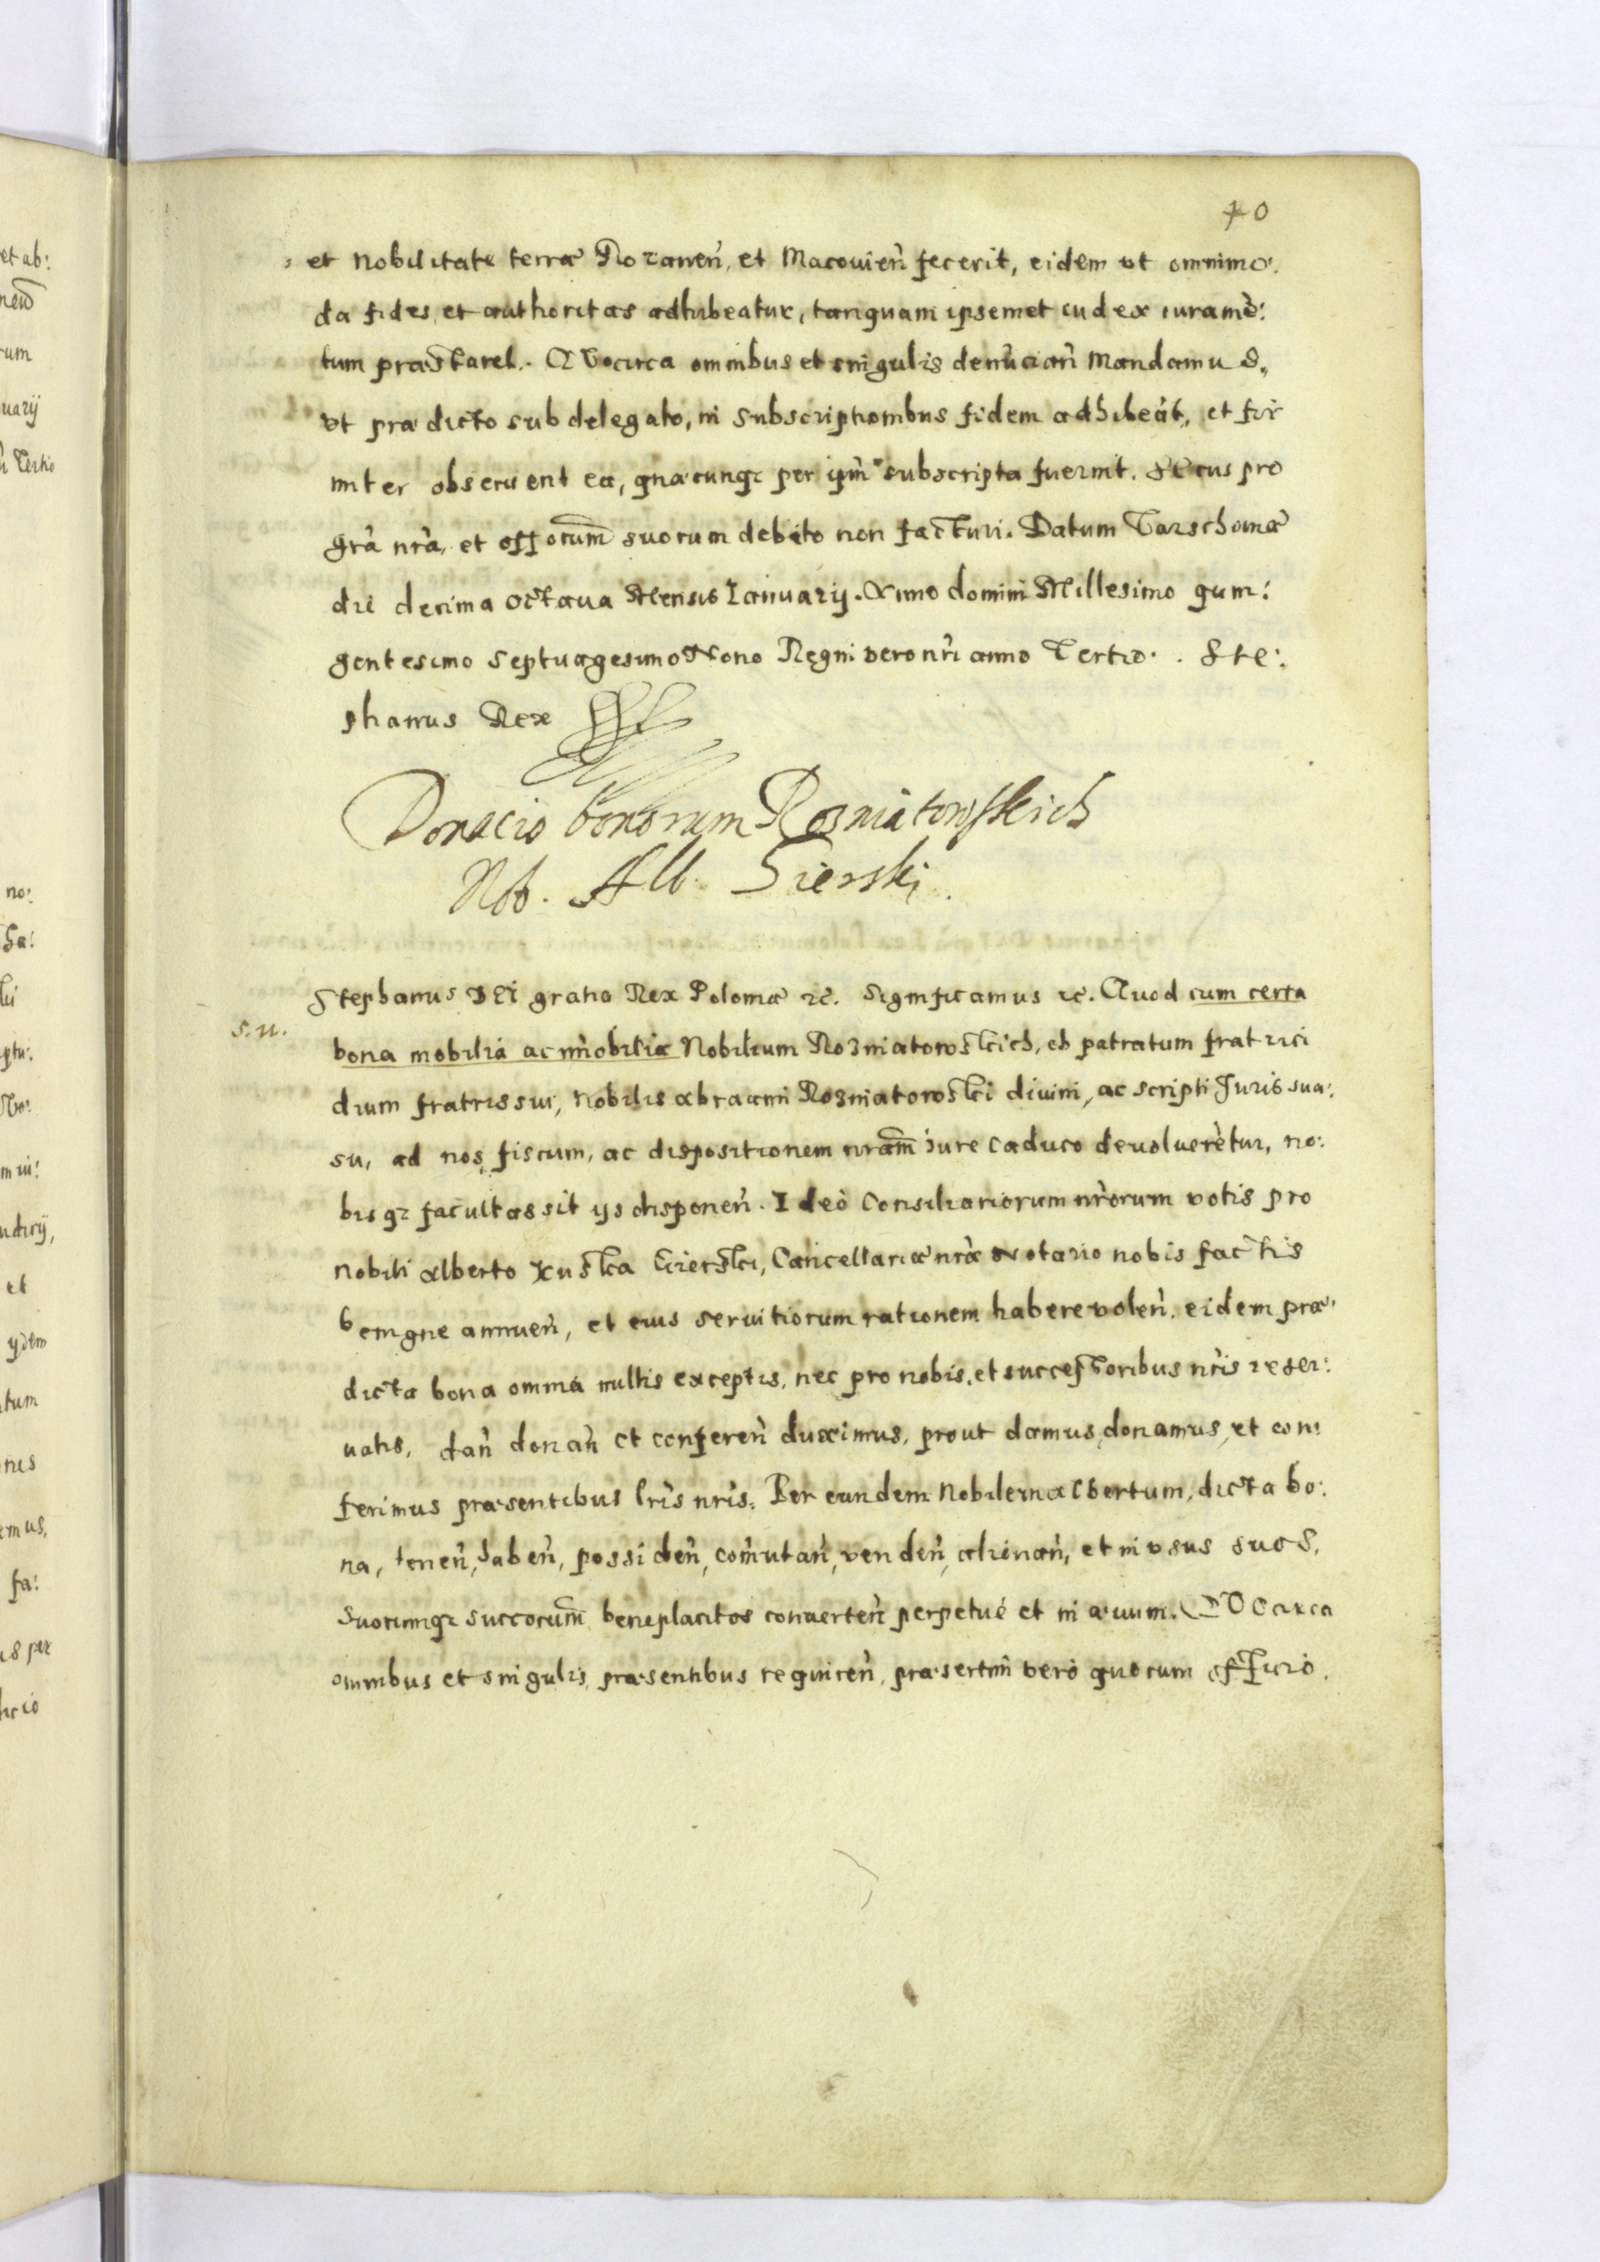 40
et nobilitate terræ Rozanen̄, et Macouien̄ fecerit, eidem vt omnimo:
da fides et authoritas adhibeatur, tanquam ipsemet iudex iuramē:
tum præstaret. Quocirca omnibus et singulis denūcian̄ Mandamus,
vt prædicto subdelegato, in subscriptionibus fidem adhibeāt, et fir
miter obseruent ea, quæcunqȝ per ipm̄ subscripta fuerint. Secus pro
grā nrā, et offorum̄ suorum debito non facturi. Datum Varschouiæ
die decima octaua Mensis Ianuarij. Anno domini Millesimo quin:
gentesimo Septuagesimo Nono Regni vero nr̄i anno Tertio. Ste:
phanus Rex
Donacio bonorum Rozniatowskich
Nob. Alb. Gierski.
Stephanus DEI gratia Rex Poloniæ ꝛc. Significamus ꝛc. Quod cum certa
s. u.
bona mobilia ac īmobilia Nobilium Rozniatowskich, ob patratum fratrici
dium fratris sui, Nobilis Abraami Rozniatowski diuini, ac scripti Juris sua:
su, ad nos fiscum, ac dispositionem nrām iure caduco deuoluerētur, no:
bis qȝ facultas sit ijs disponen̄. Ideò Consiliariorum nr̄orum votis pro
Nobili Alberto Kuska Gierski, Cancellariæ nrǣ Notario nobis factis
benigne annuen̄, et eius seruitiorum rationem habere volen̄. eidem præ:
dicta bona omnia nullis exceptis, nec pro nobis, et successoribus nr̄is reser:
uatis, dan̄ donan̄ et conferen̄ duximus, prout damus, donamus, et con:
ferimus præsentibus lr̄is nr̄is. Per eundem Nobilem Albertum, dicta bo:
na, tenen̄, haben̄, possiden̄, com̄utan̄, venden̄, alienan̄, et in vsus suos,
Suorumqȝ succorum̄ beneplacitos conuerten̄ perpetuè et in æuum. Quocirca
omnibus et singulis, præsentibus requiren̄, præsertim verò quorum